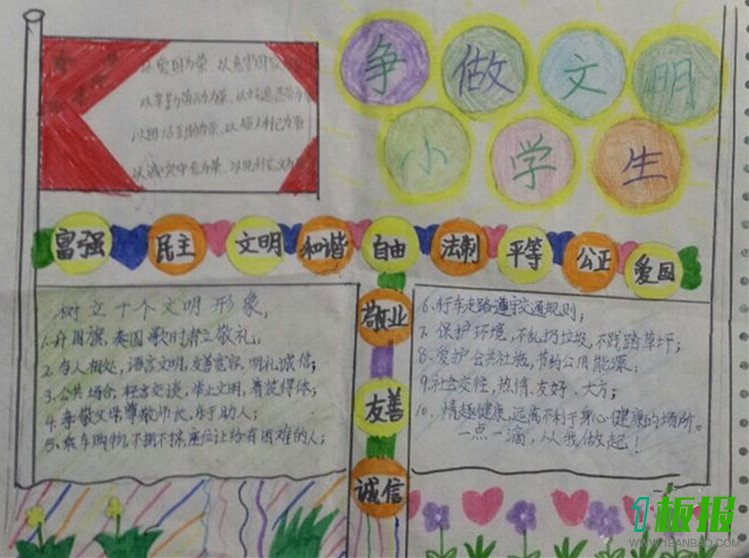 争做文明
小学生
以爱国为荣、以危害
以辛勤劳动为荣、以好逸恶劳为
以团结互助为荣、以损人利己为
以诚实守信为荣、以见利忘义为
富强 民主 文明 和谐 自由 法制 平等 公正 爱国
敬业
友善
诚信
树立十个文明形象,
1.升国旗,奏国歌时肃立敬礼;
2.与人相处,语言文明,友善宽容,明礼诚信;
3.公共场合,轻言交谈,举止文明,着装得体;
4.孝敬父母尊敬师长,乐于助人;
5.乘车购物,不拥不挤,座位让给有困难的人;
6.行车走路遵守交通规则;
7.保护环境,不乱扔垃圾,不践踏草坪;
8.爱护公共设施,节约公用能源;
9.社会交往,热情、友好、大方;
10、情趣健康,远离不利于身心健康的场所。
一点一滴,从我做起!
1板报
WWW.1BANBAO.COM